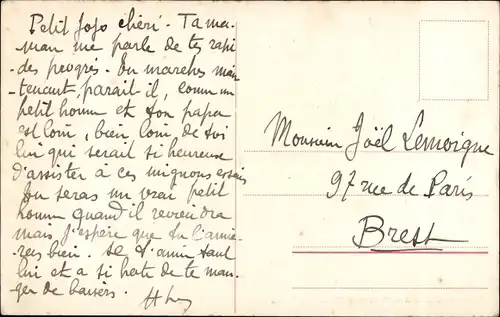 Petit Jojo chéri. Ta ma-
man me parle de tes rapi-
des progrès. Tu marches main-
tenant, parait-il, comme un
petit homme et ton papa
est loin, bien loin, de toi
lui qui serait si heureux
d'assister à ces mignons essais
Tu seras un vrai petit
homme quand il reviendra
mais j'espère que tu l'aime-
ras bien. Il t'aime tant
lui et a si hate de te man-
ger de baisers.
Monsieur Joël Lemoigne
97 rue de Paris
Brest